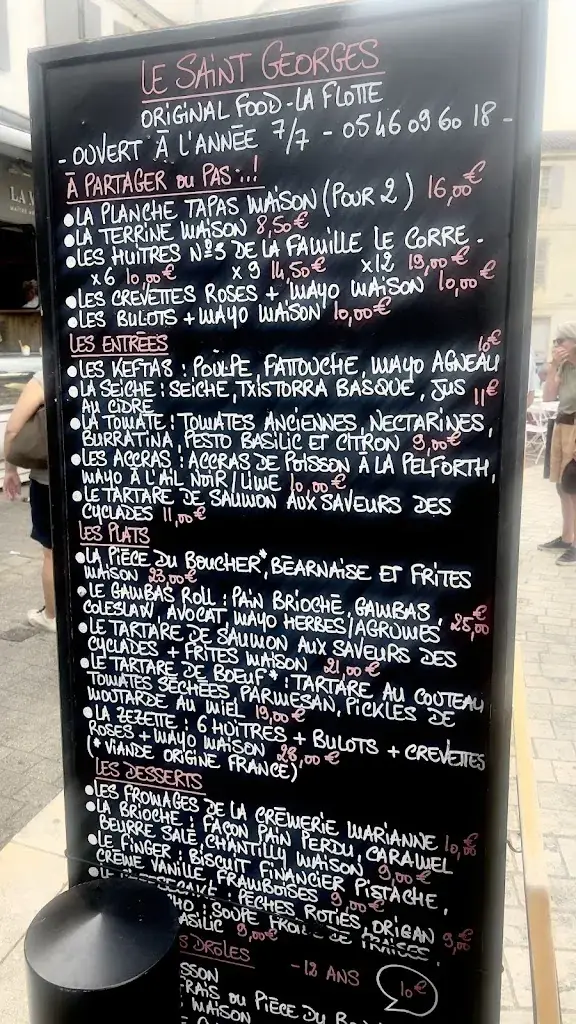 LE SAINT GEORGES
ORIGINAL FOOD - LA FLOTTE
- OUVERT À L'ANNÉE 7/7 - 05 46 09 60 18 -
À PARTAGER OU PAS...!
•LA PLANCHE TAPAS MAISON (POUR 2) 16,00€
•LA TERRINE MAISON 8,50€
•LES HUITRES N°3 DE LA FAMILLE LE CORRE -
x6 10,00€ x9 14,50€ x12 19,00€
•LES CREVETTES ROSES + MAYO MAISON 10,00€
•LES BULOTS + MAYO MAISON 10,00€
LES ENTRÉES
•LES KEFTAS : POULPE, FATTOUCHE, MAYO AGNEAU 10€
•LA SEICHE : SEICHE, TXISTORRA BASQUE, JUS 11€
AU CIDRE
•LA TOMATE : TOMATES ANCIENNES, NECTARINES,
BURRATINA, PESTO BASILIC ET CITRON 9,00€
•LES ACCRAS : ACCRAS DE POISSON À LA PELFORTH,
MAYO À L'AIL NOIR/LIME 10,00€
•LE TARTARE DE SAUMON AUX SAVEURS DES
CYCLADES 11,00€
LES PLATS
•LA PIÈCE DU BOUCHER*, BÉARNAISE ET FRITES
MAISON 23,00€
•LE GAMBAS ROLL : PAIN BRIOCHÉ, GAMBAS,
COLESLAW, AVOCAT, MAYO HERBES/AGRUMES 25,00€
•LE TARTARE DE SAUMON AUX SAVEURS DES
CYCLADES + FRITES MAISON 21,00€
•LE TARTARE DE BOEUF* : TARTARE AU COUTEAU
TOMATES SÉCHÉES, PARMESAN, PICKLES DE
MOUTARDE AU MIEL 19,00€
•LA ZEZETTE : 6 HUITRES + BULOTS + CREVETTES
ROSES + MAYO MAISON 28,00€
(*VIANDE ORIGINE FRANCE)
LES DESSERTS
•LES FROMAGES DE LA CRÈMERIE MARIANNE 10,00€
•LA BRIOCHE : FAÇON PAIN PERDU, CARAMEL
BEURRE SALÉ, CHANTILLY MAISON 9,00€
•LE FINGER : BISCUIT FINANCIER PISTACHE,
CRÈME VANILLE, FRAMBOISES 9,00€
•LE CHEESECAKE : PÊCHES ROTIES, ORIGAN 9,00€
CHO : SOUPE FROIDE DE FRAISES,
BASILIC 9,00€
S DROLES -12 ANS 10€
SSON
FRAIS OU PIÈCE DU BO
MAISON